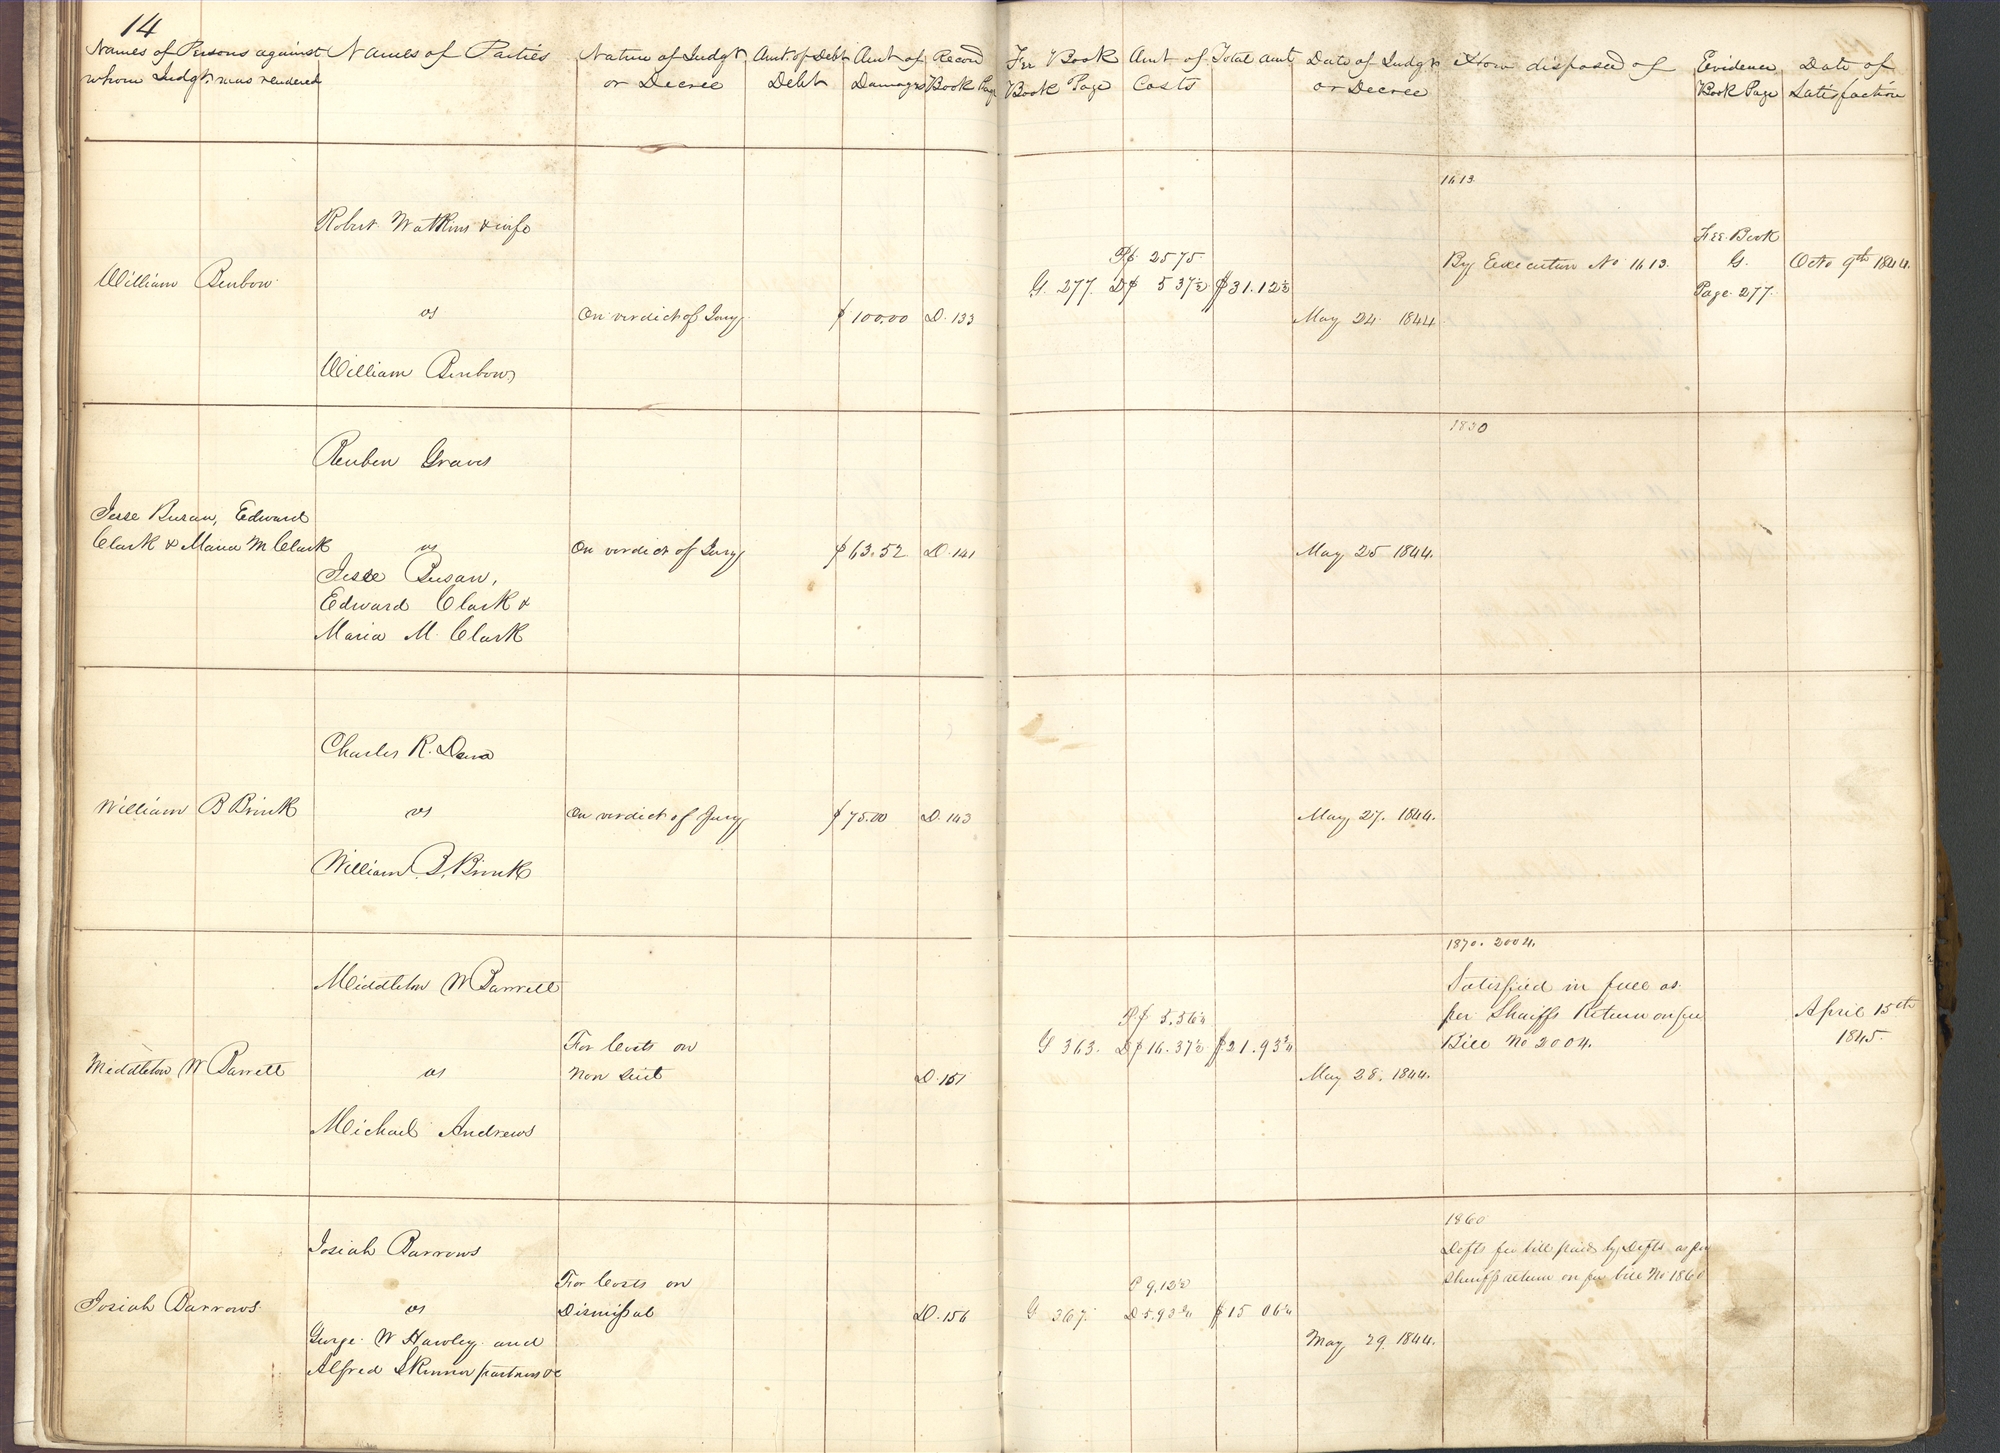 14
Names of Persons against
whom Judgt. was rendered
Names of Parties
Nature of Judgt.
or Decree
Amt. of Debt
Debt
Amt of
Damages
Record
Book Page
Fee Book
Book Page
Amt of
Costs
Total amt
Date of Judgt
or Decree
How disposed of
Evidence
Book Page
Date of
Satisfaction
William Benbow
Robert Watkins & wife
vs
William Benbow
On verdict of Jury
$100.00
D. 133
G. 277.
P$ 25 75
D$ 5 37½
$31.12½
May 24 1844
1613
By Execution No 1613.
Fee Book
G.
Page 277.
Octo 9th 1844.
Jesse Busan, Edward
Clark & Maria M Clark
Reuben Graves
vs
Jesse Busan,
Edward Clark &
Maria M. Clark
On verdict of Jury
$63.52
D. 141
May 25 1844.
1830
William B Brink
Charles R. Dana
vs
William B. Brink
On verdict of Jury
$75.00
D. 143
May 27. 1844.
Middleton W Barrett
Middleton W Barrett
vs
Michael Andrews
For Costs on
Non Suit
D. 151
G 363.
P$ 5.56¼
D$ 16.37½
$21.93¾
May 28. 1844.
1870. 2004.
Satisfied in full as
per Sheriffs Return on fee
Bill No 2004.
April 15th
1845.
Josiah Barrows
Josiah Barrows
vs
George W Hawley and
Alfred Skinner partners &c
For Costs on
Dismissal
D. 156
G 367.
P 9.12½
D 5.93¾
$15 06¼
May 29. 1844.
1860
Defts fee bill paid by Defts as per
Sheriffs return on fee bill No 1860